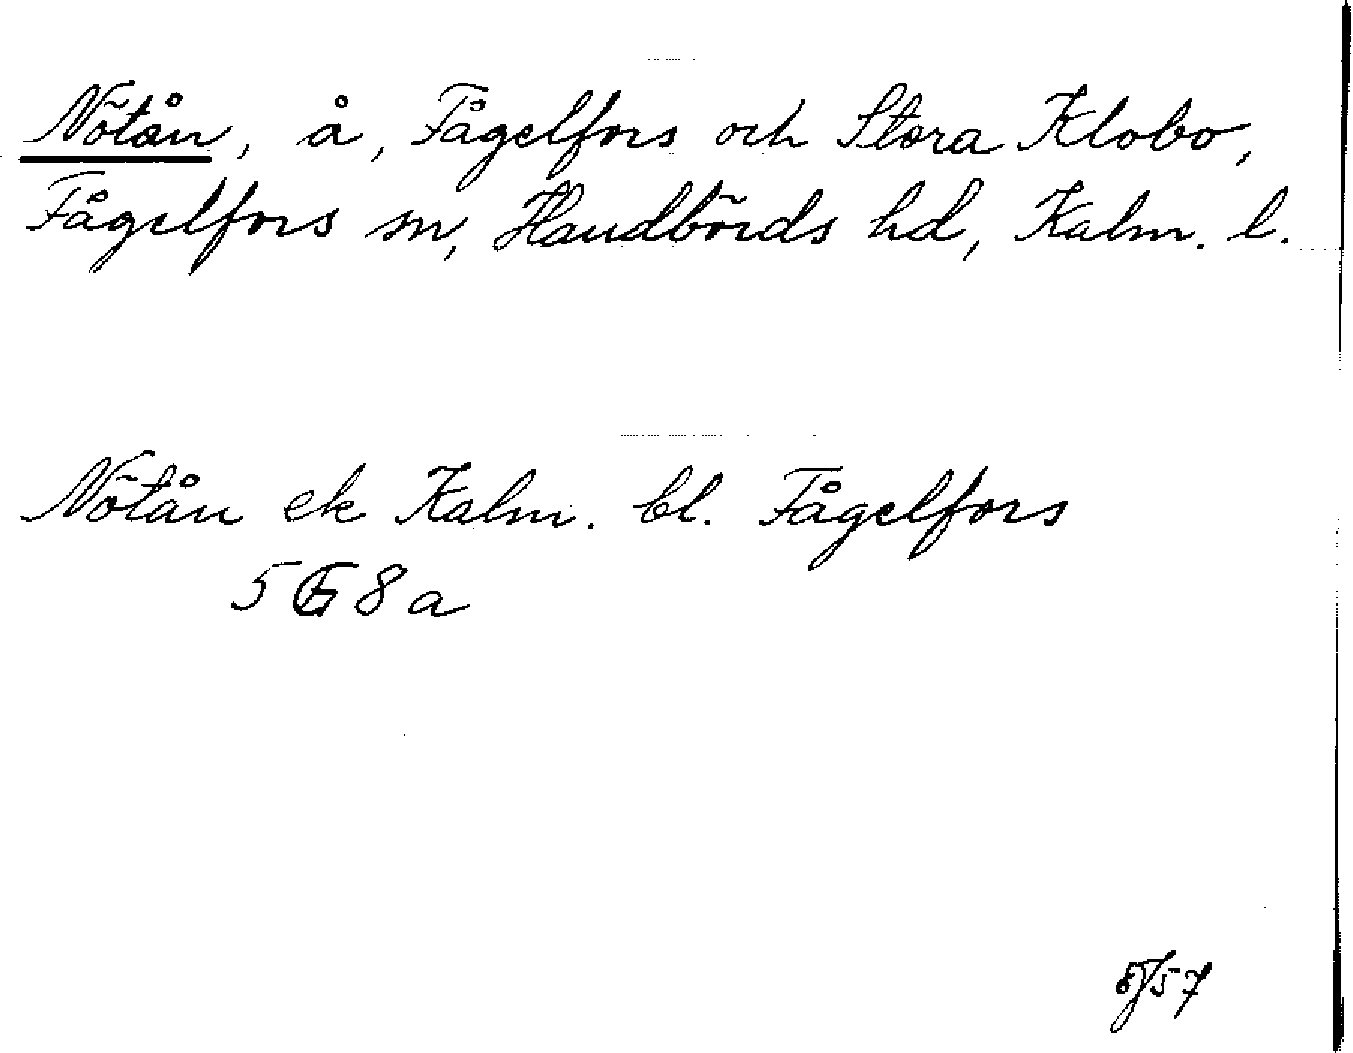 Nötån, å, Fågelfors och Stora Klobo,
Fågelfors sn, Handbörds hd, Kalm. l.
Nötån ek Kalm. bl. Fågelfors
5 G 8 a